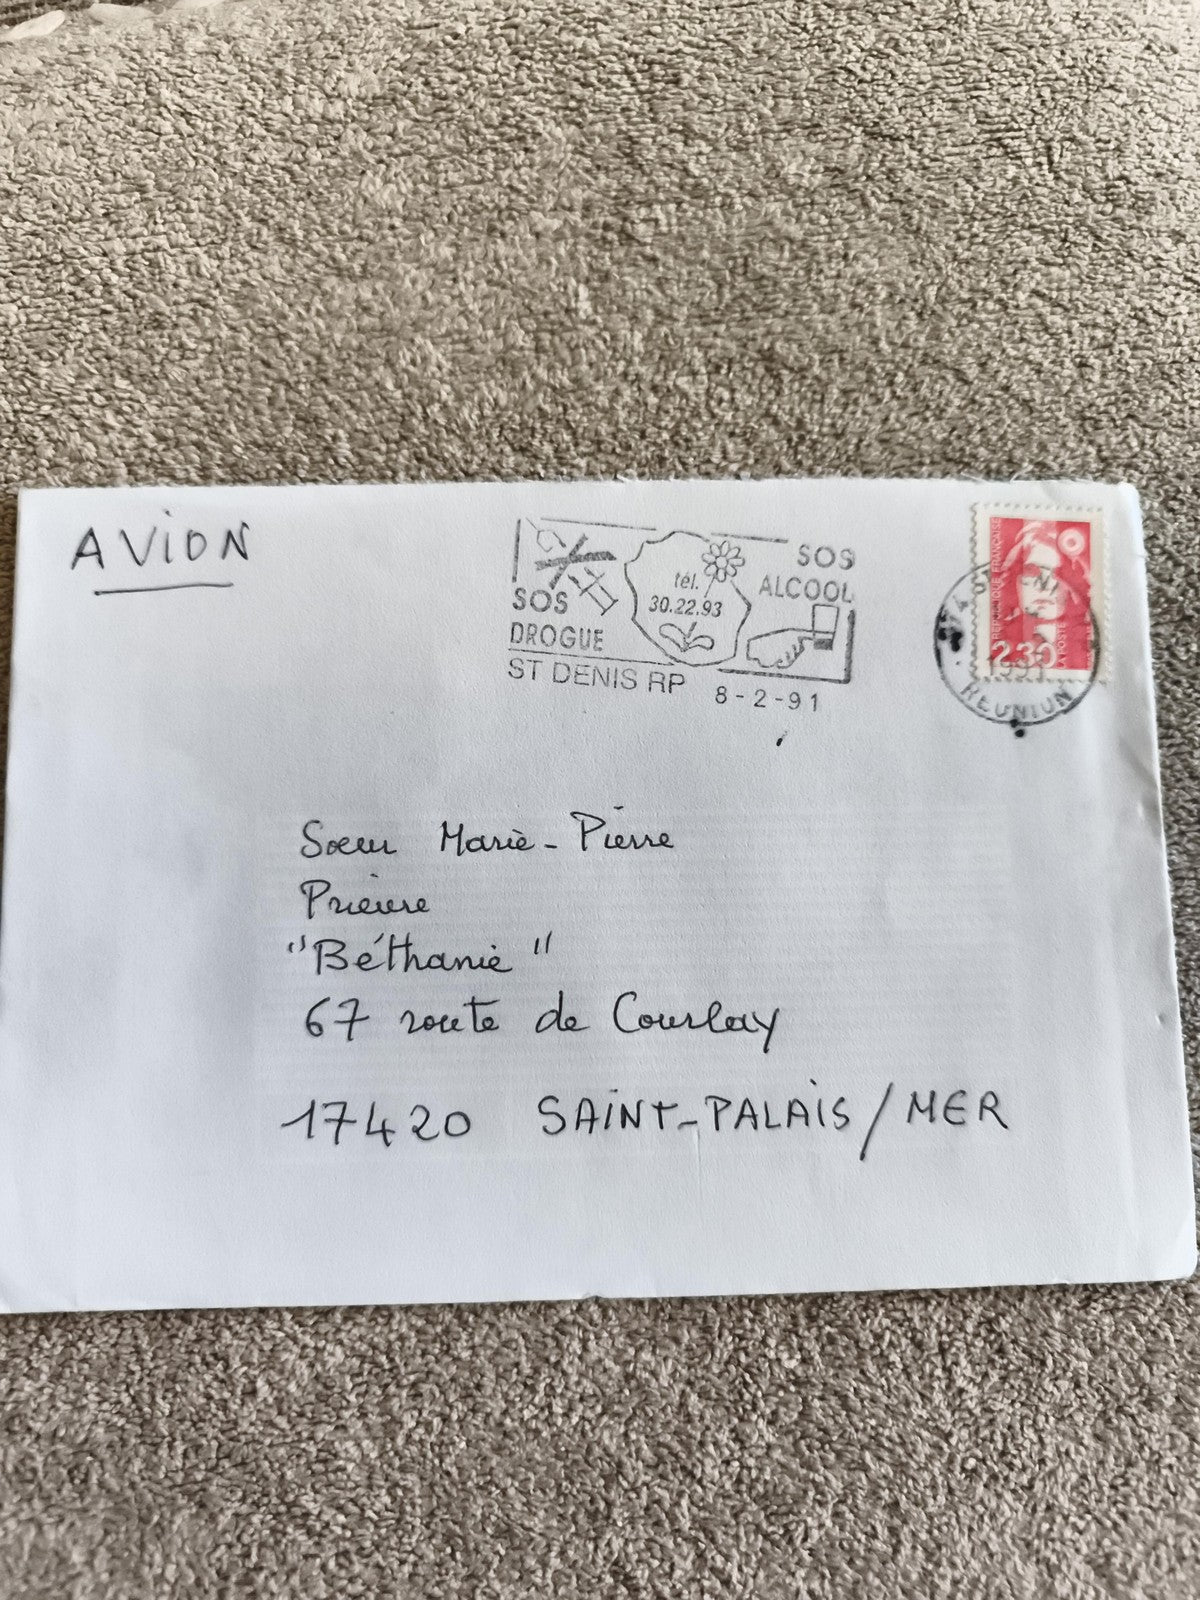 AViON
SOS
DROGUE
tél.
30.22.93
SOS
ALCOOL
ST DENIS RP 8-2-91
REPUBLIQUE FRANÇAISE
2,30
LA POSTE
1991
REUNION
Sœur Marie-Pierre
Prieure
"Béthanie"
67 route de Courlay
17420 SAiNT-PALAiS/MER